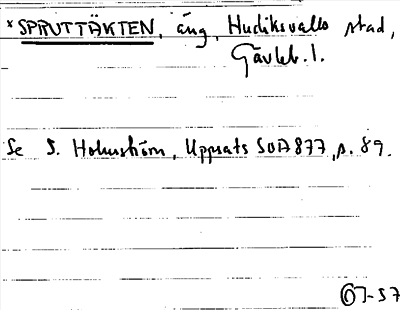 * SPRUTTÄKTEN, äng, Hudiksvalls stad,
Gävleb. l.
Se S. Holmström, Uppsats SOA 877, s. 89.
-57